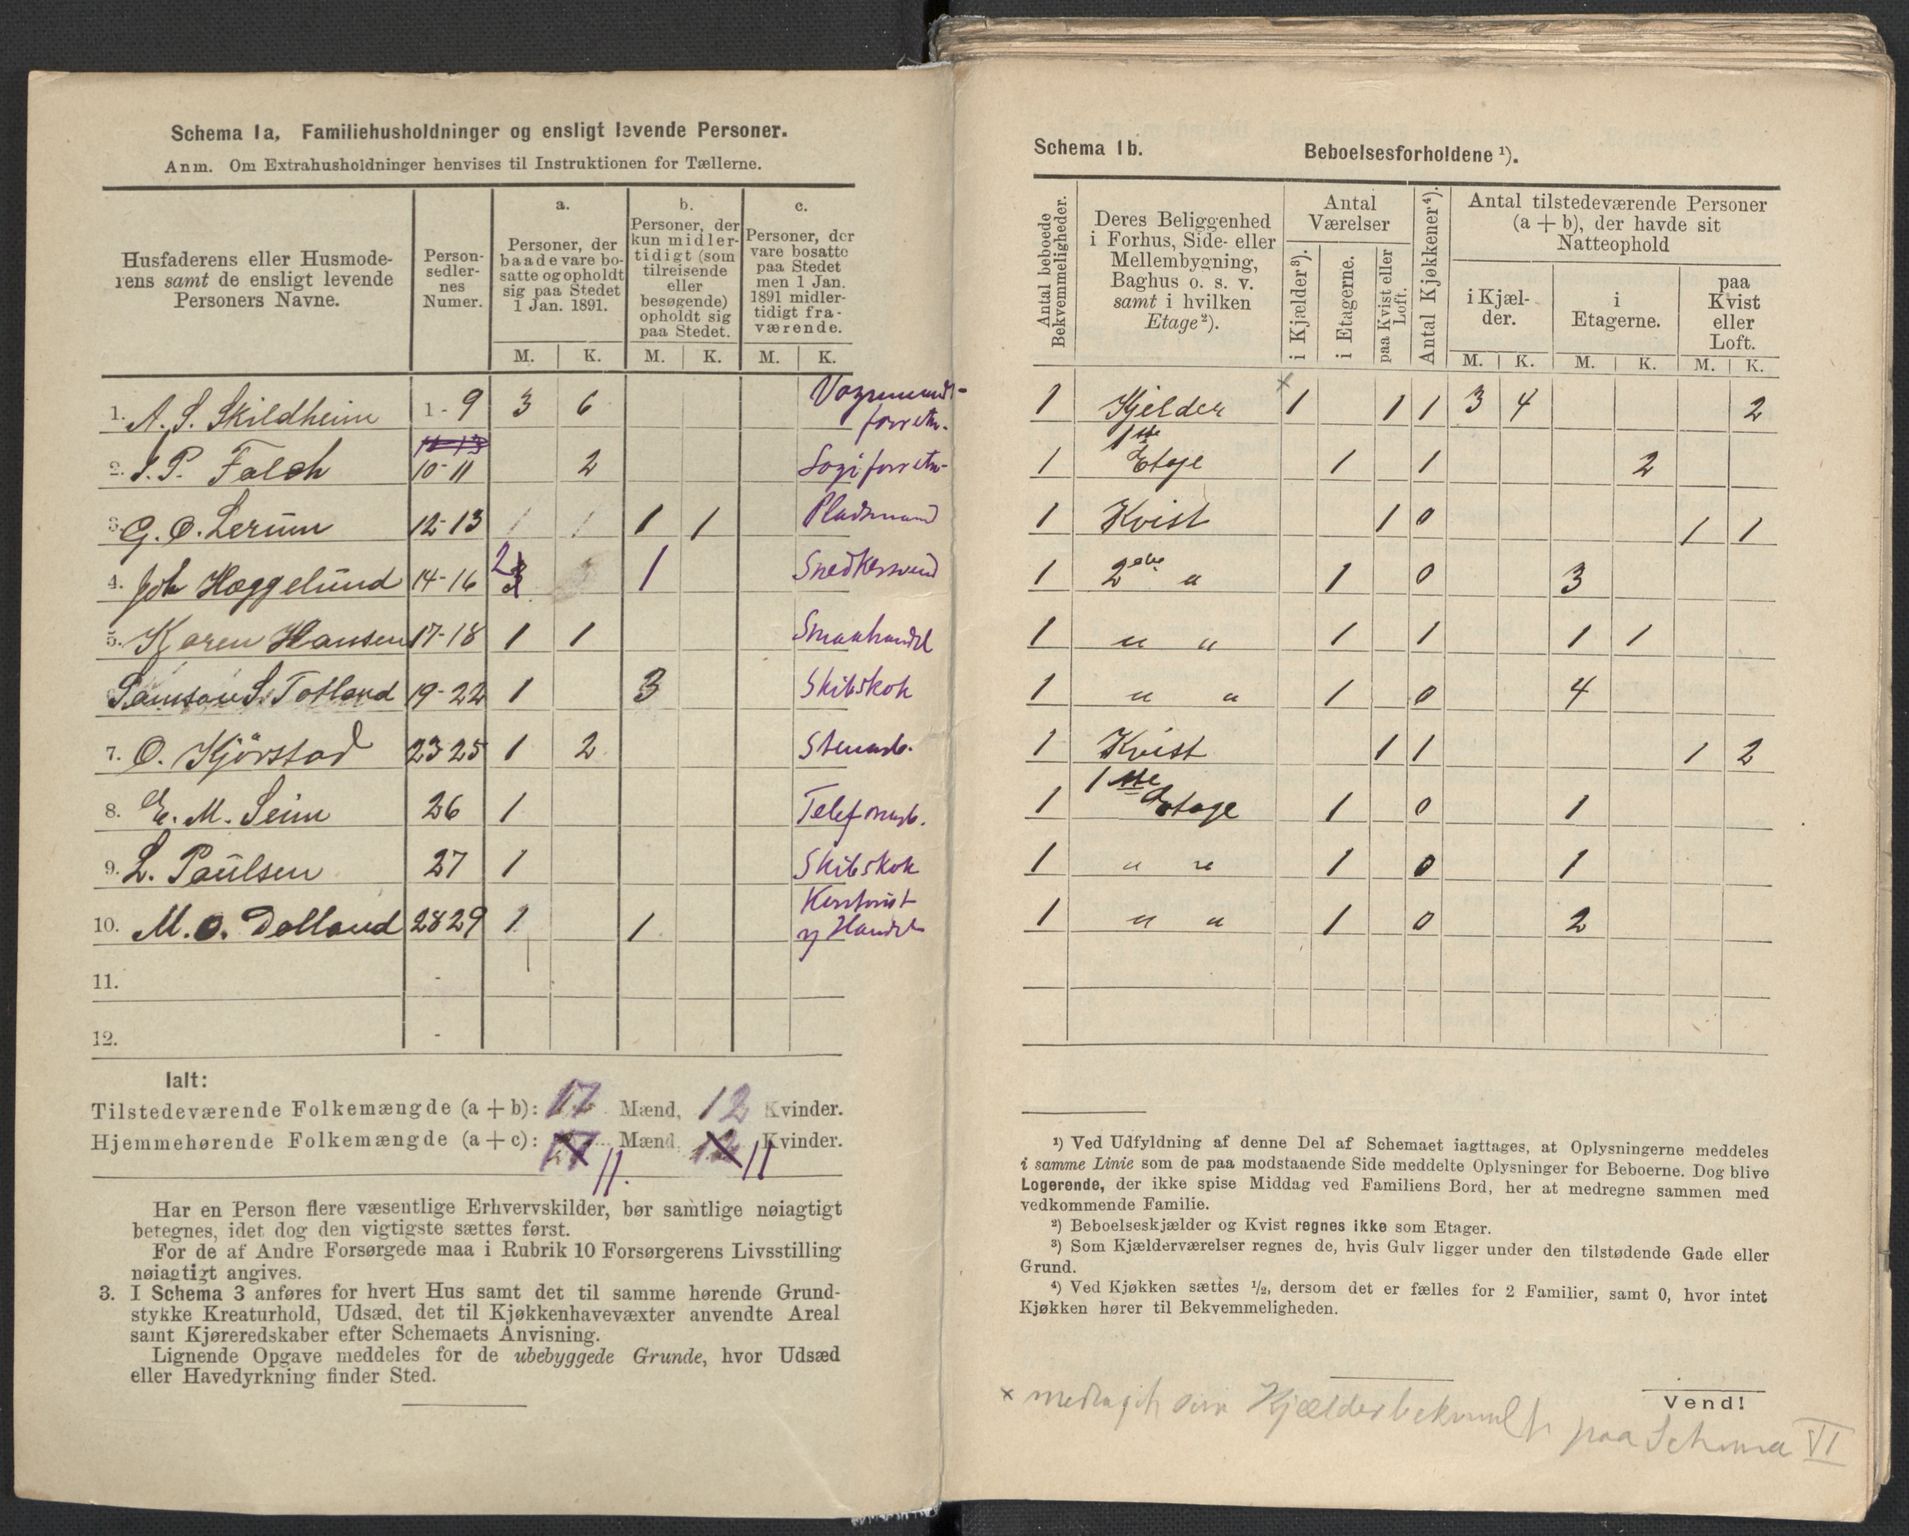 Schema 1a. Familiehusholdninger og ensligt levende Personer.
Anm. Om Extrahusholdninger henvises til Instruktionen for Tællerne.
Husfaderens eller Husmode-
rens samt de ensligt levende
Personers Navne.
Person-
sedler-
nes
Numer.
a.
Personer, der
baade vare bo-
satte og opholdt
sig paa Stedet
1 Jan. 1891.
b.
Personer, der
kun midler-
tidigt (som
tilreisende
eller
besøgende)
opholdt sig
paa Stedet.
c.
Personer, der
vare bosatte
paa Stedet
men 1 Jan.
1891 midler-
tidigt fra-
værende.
M. K. M. K. M. K.
1. A. S. Skildheim 1-9 3 6
2. S. P. Falch 12-13 10-11 2 Logiforretn-
3. G. O. Lerum 12-13 1 1 1 1 Pladsmand
4. Joh Hæggelund 14-16 2 3 1 Snedkersvend
5. Karen Hansen 17-18 1 1 Smaahandel
Samson S. Totland 19-22 1 3 Skibskok
7. O. Kjörstad 23-25 1 2 Stenarb.
8. E. M. Seim 26 1 Telefonarb.
9. L. Paulsen 27 1 Skibskok
10. M. O. Dolland 28 29 1 1 Handel
11. -
12. -
Ialt:
Tilstedeværende Folkemængde (a + b): 17 Mænd, 12 Kvinder.
Hjemmehørende Folkemængde (a + c): 17 11. Mænd, 12 11 Kvinder.
Har en Person flere væsentlige Erhvervskilder, bør samtlige nøiagtigt
betegnes, idet dog den vigtigste sættes først.
For de af Andre Forsørgede maa i Rubrik 10 Forsørgerens Livsstilling
nøiagtigt angives.
3. I Schema 3 anføres for hvert Hus samt det til samme hørende Grund-
stykke Kreaturhold, Udsæd, det til Kjøkkenhavevæxter anvendte Areal
samt Kjøreredskaber efter Schemaets Anvisning.
Lignende Opgave meddeles for de ubebyggede Grunde, hvor Udsæd
eller Havedyrkning finder Sted.
Schema 1b. Beboelsesforholdene ¹).
Antal beboede
Bekvemmeligheder.
Deres Beliggenhed
i Forhus, Side- eller
Mellembygning,
Baghus o. s. v.
samt i hvilken
Etage²).
Antal
Værelser
i Kjælder³).
i Etagerne.
paa Kvist eller
Loft.
Antal Kjøkkener⁴).
Antal tilstedeværende Personer
(a + b), der havde sit
Natteophold
i Kjæl-
der.
i
Etagerne.
paa
Kvist
eller
Loft.
M. K. M. K. M. K.
1 Kjelder × 1 1 1 3 4 2
1 1ste Etage 1 1 2
1 Kvist 1 0 1 1
1 2den " 1 0 3
1 " " 1 1 1 1
1 " " 1 0 4
1 Kvist 1 1 1 2
1 1ste Etage 1 0 1
1 " " 1 0 1
1 " " 1 0 2
¹) Ved Udfyldning af denne Del af Schemaet iagttages, at Oplysningerne meddeles
i samme Linie som de paa modstaaende Side meddelte Oplysninger for Beboerne. Dog blive
Logerende, der ikke spise Middag ved Familiens Bord, her at medregne sammen med
vedkommende Familie.
²) Beboelseskjælder og Kvist regnes ikke som Etager.
³) Som Kjælderværelser regnes de, hvis Gulv ligger under den tilstødende Gade eller
Grund.
⁴) Ved Kjøkken sættes ½, dersom det er fælles for 2 Familier, samt 0, hvor intet
Kjøkken hører til Bekvemmeligheden.
Vend!
× som paa Schema VI